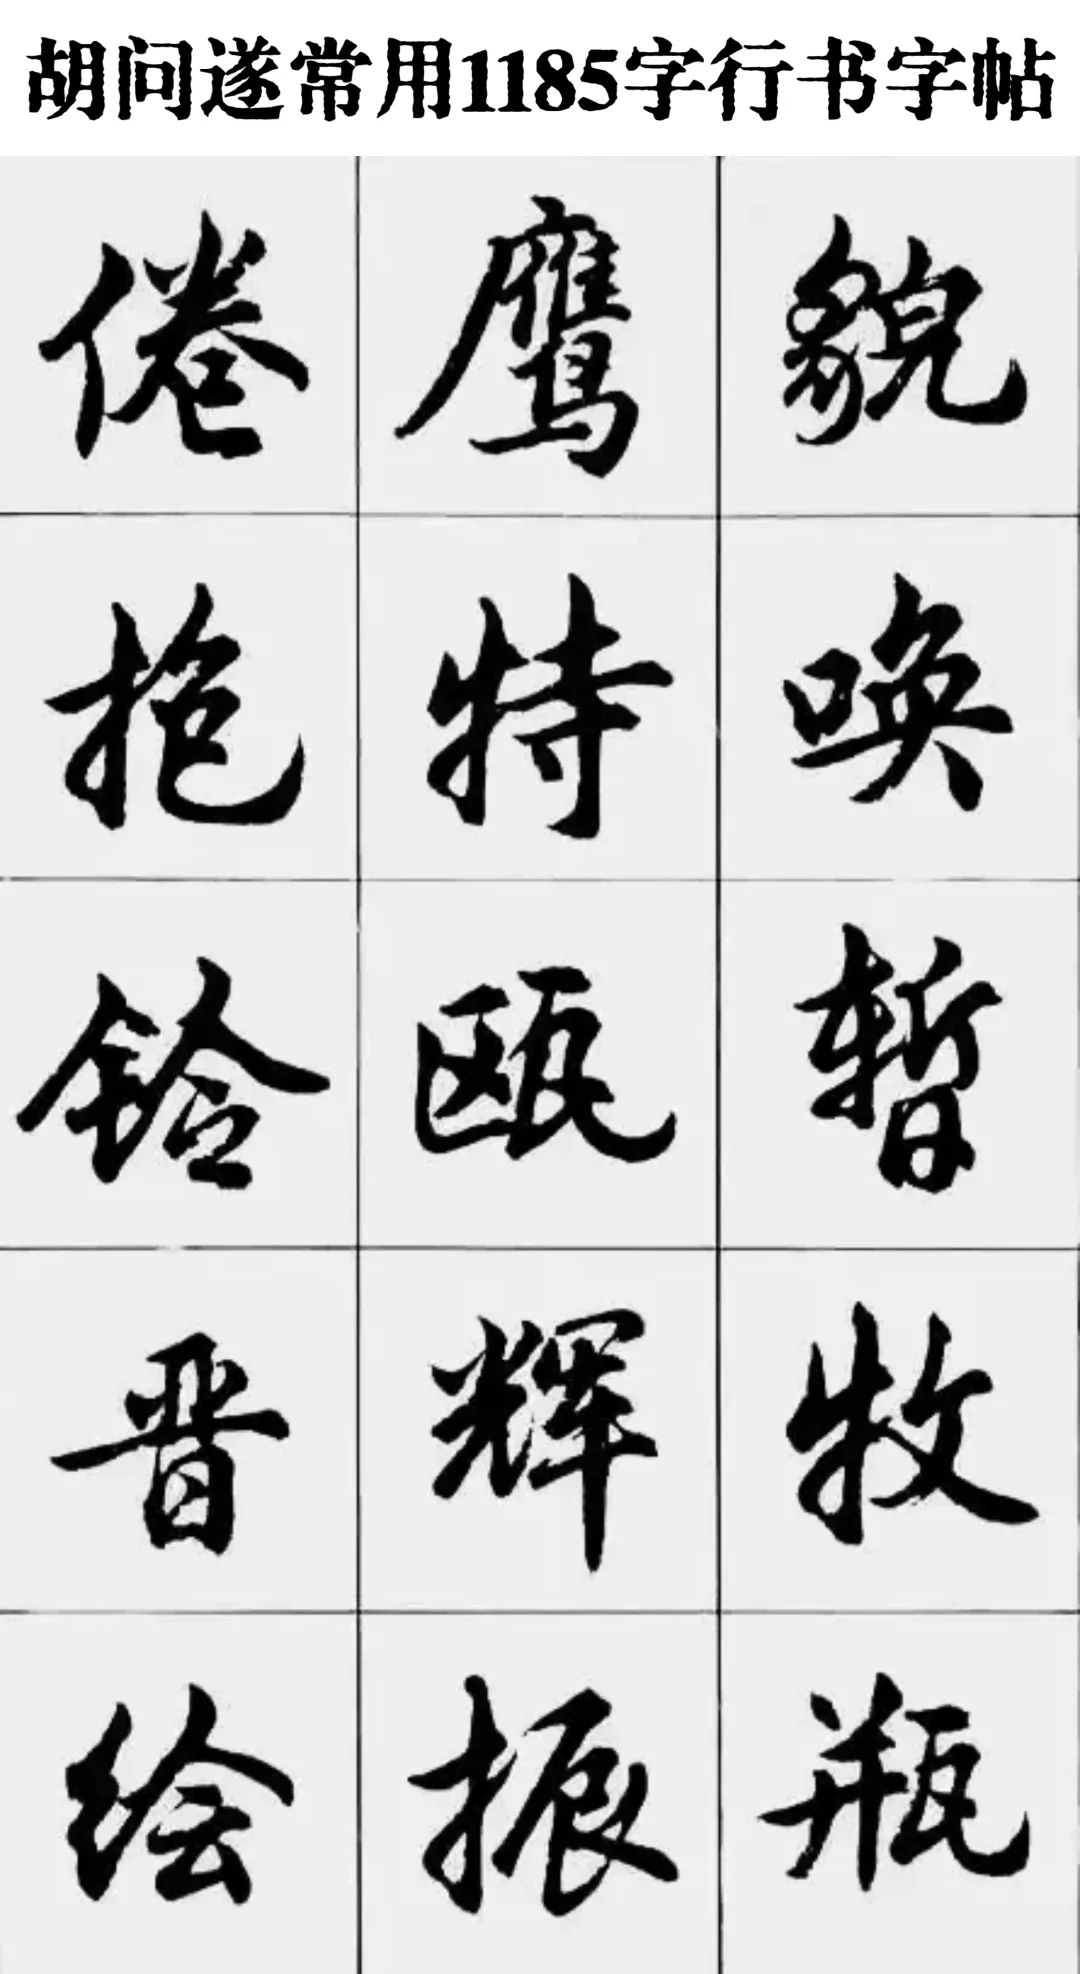 胡问遂常用1185字行书字帖
倦鹰貌
抱特唤
铃瓯暂
晋辉牧
绘振瓶